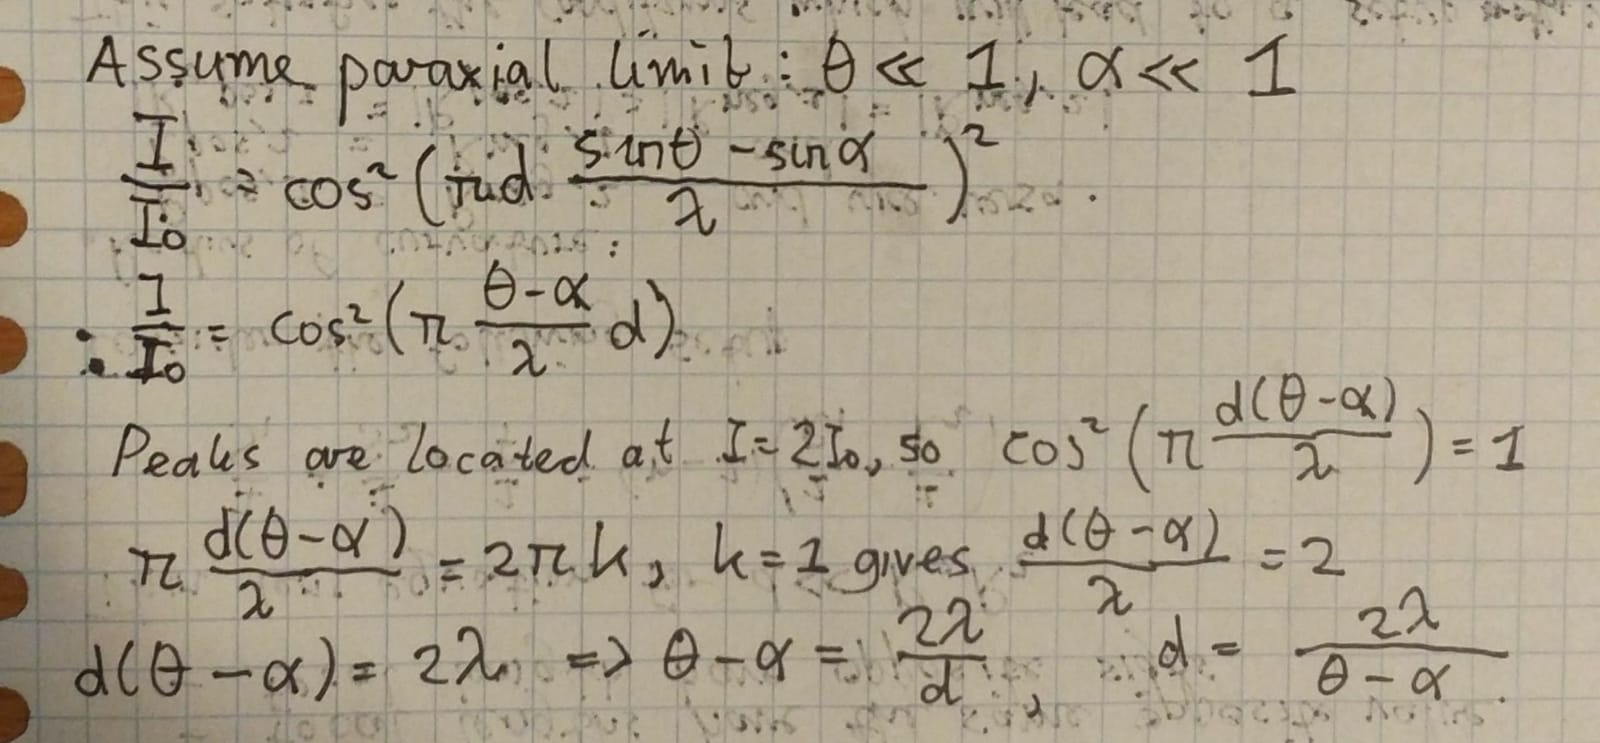 Assume paraxial limit: θ ≪ 1, α ≪ 1
I/I₀ = cos² (πd (sinθ - sinα)/λ)² .
∴ I/I₀ = cos² (π (θ-α)/λ d)
Peaks are located at I = 2I₀, so cos² (π d(θ-α)/λ) = 1
π d(θ-α)/λ = 2πk, k=1 gives d(θ-α)/λ = 2
d(θ-α) = 2λ => θ-α = 2λ/d, d = 2λ/(θ-α).